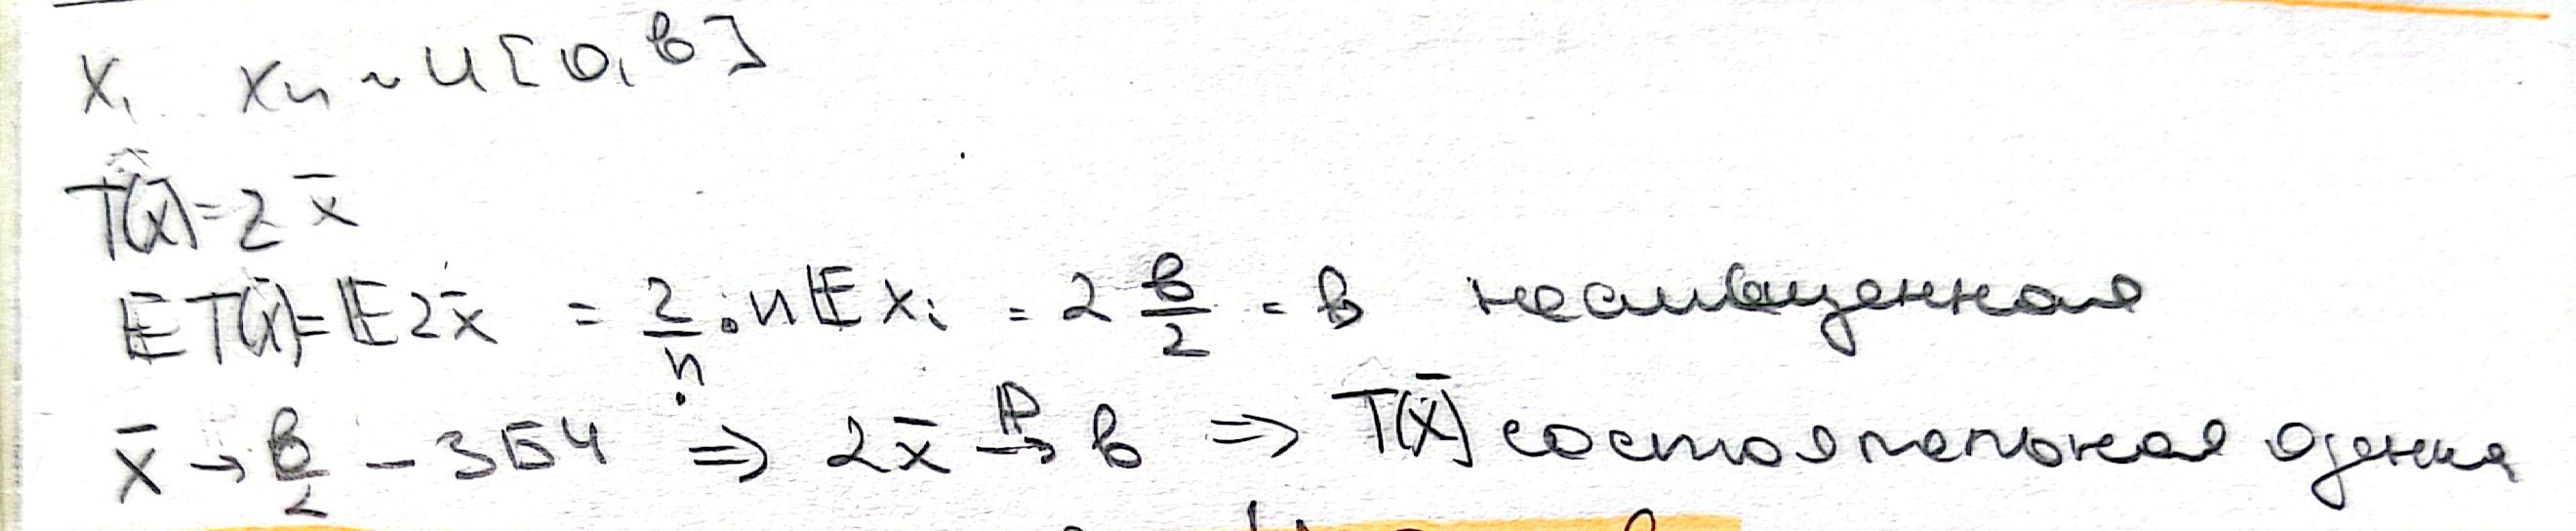 X₁ Xₙ ~ U[0, b]
T(x̄) = 2 x̄
𝔼T(x̄) = 𝔼2x̄ = 2/n · n𝔼xᵢ = 2 b/2 = b несмещенная
x̄ → b/2 - ЗБЧ ⇒ 2x̄ →ᴾ b ⇒ T(x̄) состоятельная оценка